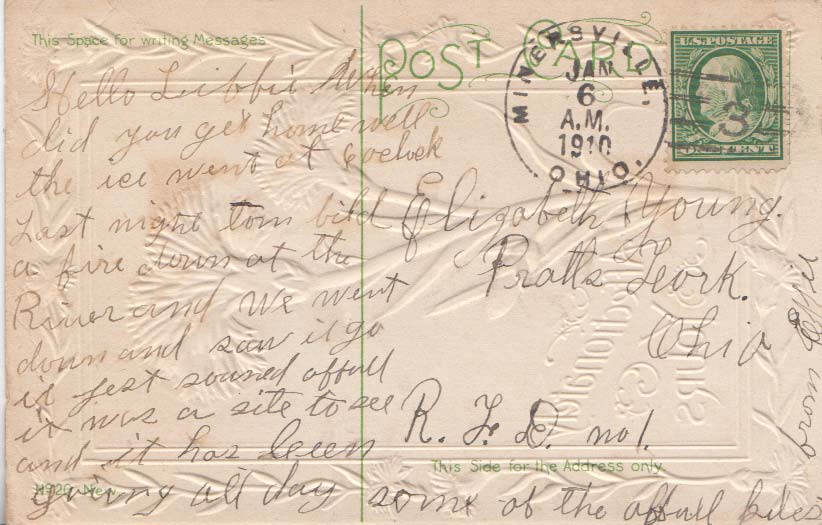 This Space for writing Messages
POST CARD
MINERSVILLE.
JAN
6
A.M.
1910
OHIO.
U.S. POSTAGE
ONE CENT
3
Hello Libbie When
did you get home well
the ice went at 6 oclock
Last night tom bild
a fire down at the
River and we went
down and saw it go
it jest sound affull
it was a site to see
and it has been
going all day some of the affull
Elizabeth Young.
Pratts Fork.
Ohio
R. F. D. no 1.
from Effie
This Side for the Address only
Affectionately
Yours